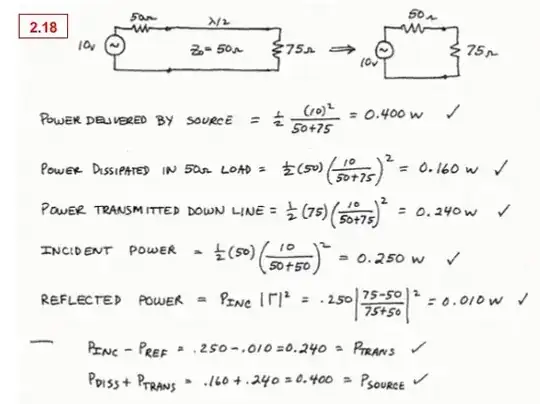 2.18
50Ω λ/2 50Ω
10V Z₀ = 50Ω 75Ω ⇒ 10V 75Ω
POWER DELIVERED BY SOURCE = 1/2 (10)²/(50+75) = 0.400 W ✓
POWER DISSIPATED IN 50Ω LOAD = 1/2 (50) (10/(50+75))² = 0.160 W ✓
POWER TRANSMITTED DOWN LINE = 1/2 (75) (10/(50+75))² = 0.240 W ✓
INCIDENT POWER = 1/2 (50) (10/(50+50))² = 0.250 W ✓
REFLECTED POWER = P_INC |Γ|² = .250 |(75-50)/(75+50)|² = 0.010 W ✓
P_INC - P_REF = .250 - .010 = 0.240 = P_TRANS ✓
P_DISS + P_TRANS = .160 + .240 = 0.400 = P_SOURCE ✓